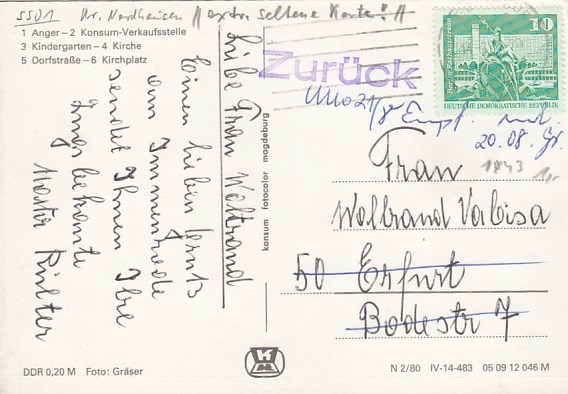 5501 Kr. Nordhausen // extra seltene Karte! //
1 Anger – 2 Konsum-Verkaufsstelle
3 Kindergarten – 4 Kirche
5 Dorfstraße – 6 Kirchplatz
Liebe Frau Wolbrand
Einen lieben
aus Immenrode
sendet Ihnen Ihre
Bekannte
Zurück
10
DEUTSCHE DEMOKRATISCHE REPUBLIK
Empf.
20.08.
Frau
Wolbrand
50 Erfurt
Bodestr 7
konsum fotocolor magdeburg
DDR 0,20 M Foto: Gräser
N 2/80 IV-14-483 05 09 12 046 M